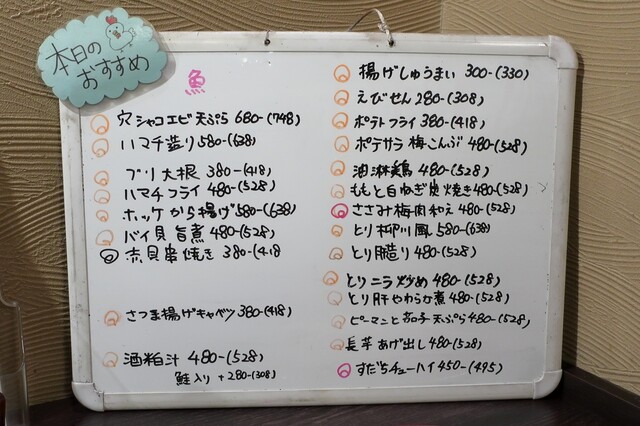 本日の
おすすめ
魚
穴シャコエビ天ぷら 680-(748)
ハマチ造り 580-(638)
ブリ大根 380-(418)
ハマチフライ 480-(528)
ホッケから揚げ 580-(638)
バイ貝旨煮 480-(528)
赤貝串焼き 380-(418
さつま揚げキャベツ 380-(418)
酒粕汁 480-(528)
鮭入り +280-(308)
揚げしゅうまい 300-(330)
えびせん 280-(308)
ポテトフライ 380-(418)
ポテサラ 梅こんぶ 480-(528)
油淋鶏 480-(528)
ももと白ねぎ炭焼き 480-(528)
ささみ梅肉和え 480-(528)
とり柳川風 580-(638)
とり造り 480-(528)
とりニラ炒め 480-(528)
とり肝やわらか煮 480-(528)
ピーマンと茄子天ぷら 480-(528)
長芋あげ出し 480-(528)
すだちチューハイ 450-(495)